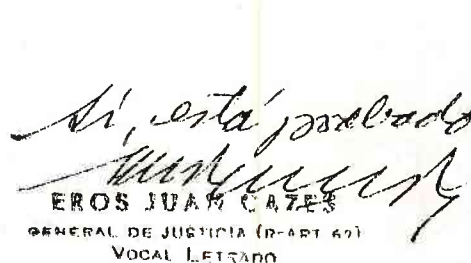 Sí, está probado
EROS JUAN CAZES
GENERAL DE JUSTICIA (R-ART 62)
VOCAL LETRADO